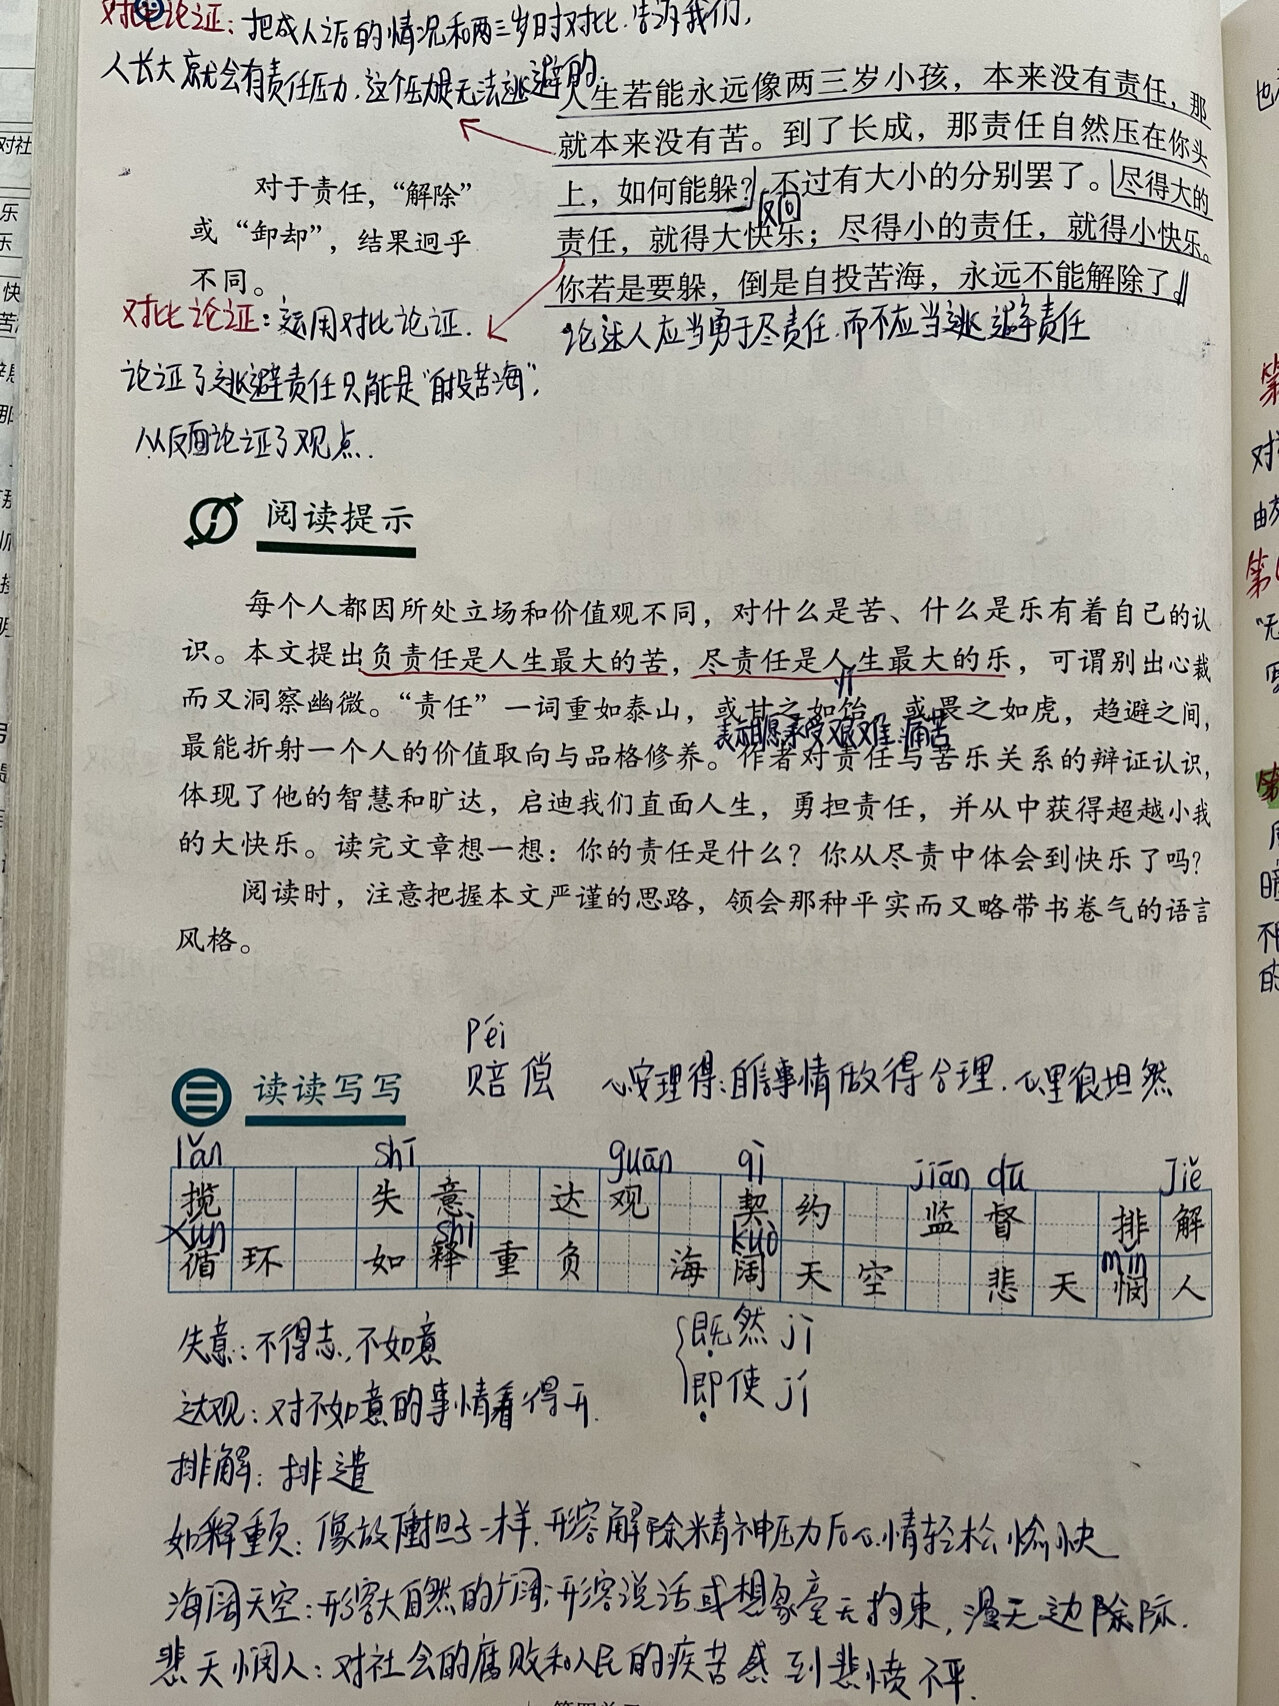 对比论证：把成人之后的情况和两三岁时对比.告诉我们,
人长大就会有责任压力.这个压力是无法逃避的.
人生若能永远像两三岁小孩，本来没有责任，那
就本来没有苦。到了长成，那责任自然压在你头
上，如何能躲？不过有大小的分别罢了。尽得大的
反问
责任，就得大快乐；尽得小的责任，就得小快乐。
你若是要躲，倒是自投苦海，永远不能解除了。
对于责任，“解除”
或“卸却”，结果迥乎
不同。
对比论证：运用对比论证.
论证了逃避责任只能是“自投苦海”,
从反面论证了观点.
论述人应当勇于尽责任.而不应当逃避责任
阅读提示
每个人都因所处立场和价值观不同，对什么是苦、什么是乐有着自己的认
识。本文提出负责任是人生最大的苦，尽责任是人生最大的乐，可谓别出心裁
而又洞察幽微。“责任”一词重如泰山，或甘之如饴，或畏之如虎，趋避之间，
yí
表示甘愿承受艰难、痛苦
最能折射一个人的价值取向与品格修养。作者对责任与苦乐关系的辩证认识，
体现了他的智慧和旷达，启迪我们直面人生，勇担责任，并从中获得超越小我
的大快乐。读完文章想一想：你的责任是什么？你从尽责中体会到快乐了吗？
阅读时，注意把握本文严谨的思路，领会那种平实而又略带书卷气的语言
风格。
péi
赔偿 心安理得：自信事情做得合理.心里很坦然
读读写写
lǎn shī guān qì jiān dū jiě
揽 失意 达观 契约 监督 排解
xún shì kuò mǐn
循环 如释重负 海阔天空 悲天悯人
失意：不得志,不如意
既然 jì
即使 jí
达观：对不如意的事情看得开.
排解：排遣
如释重负：像放下重担子一样.形容解除精神压力后心情轻松愉快
海阔天空：形容大自然的广阔;形容说话或想象毫无拘束，漫无边际.
悲天悯人：对社会的腐败和人民的疾苦感到悲愤不平.